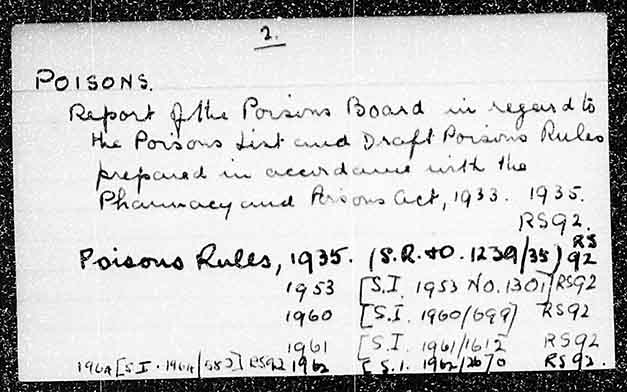 2.
POISONS.
Report of the Poisons Board in regard to
the Poisons List and Draft Poisons Rules
prepared in accordance with the
Pharmacy and Poisons Act, 1933. 1935.
RS92.
Poisons Rules, 1935. (S.R. & O. 1239/35) RS 92
1953 [S.I. 1953 NO. 1301] RS92
1960 [S.I. 1960/699] RS92
1961 [S.I. 1961/1612 RS92
1964 [S.I. 1964/ ] RS92 1962 [S.I. 1962/2670 RS92.